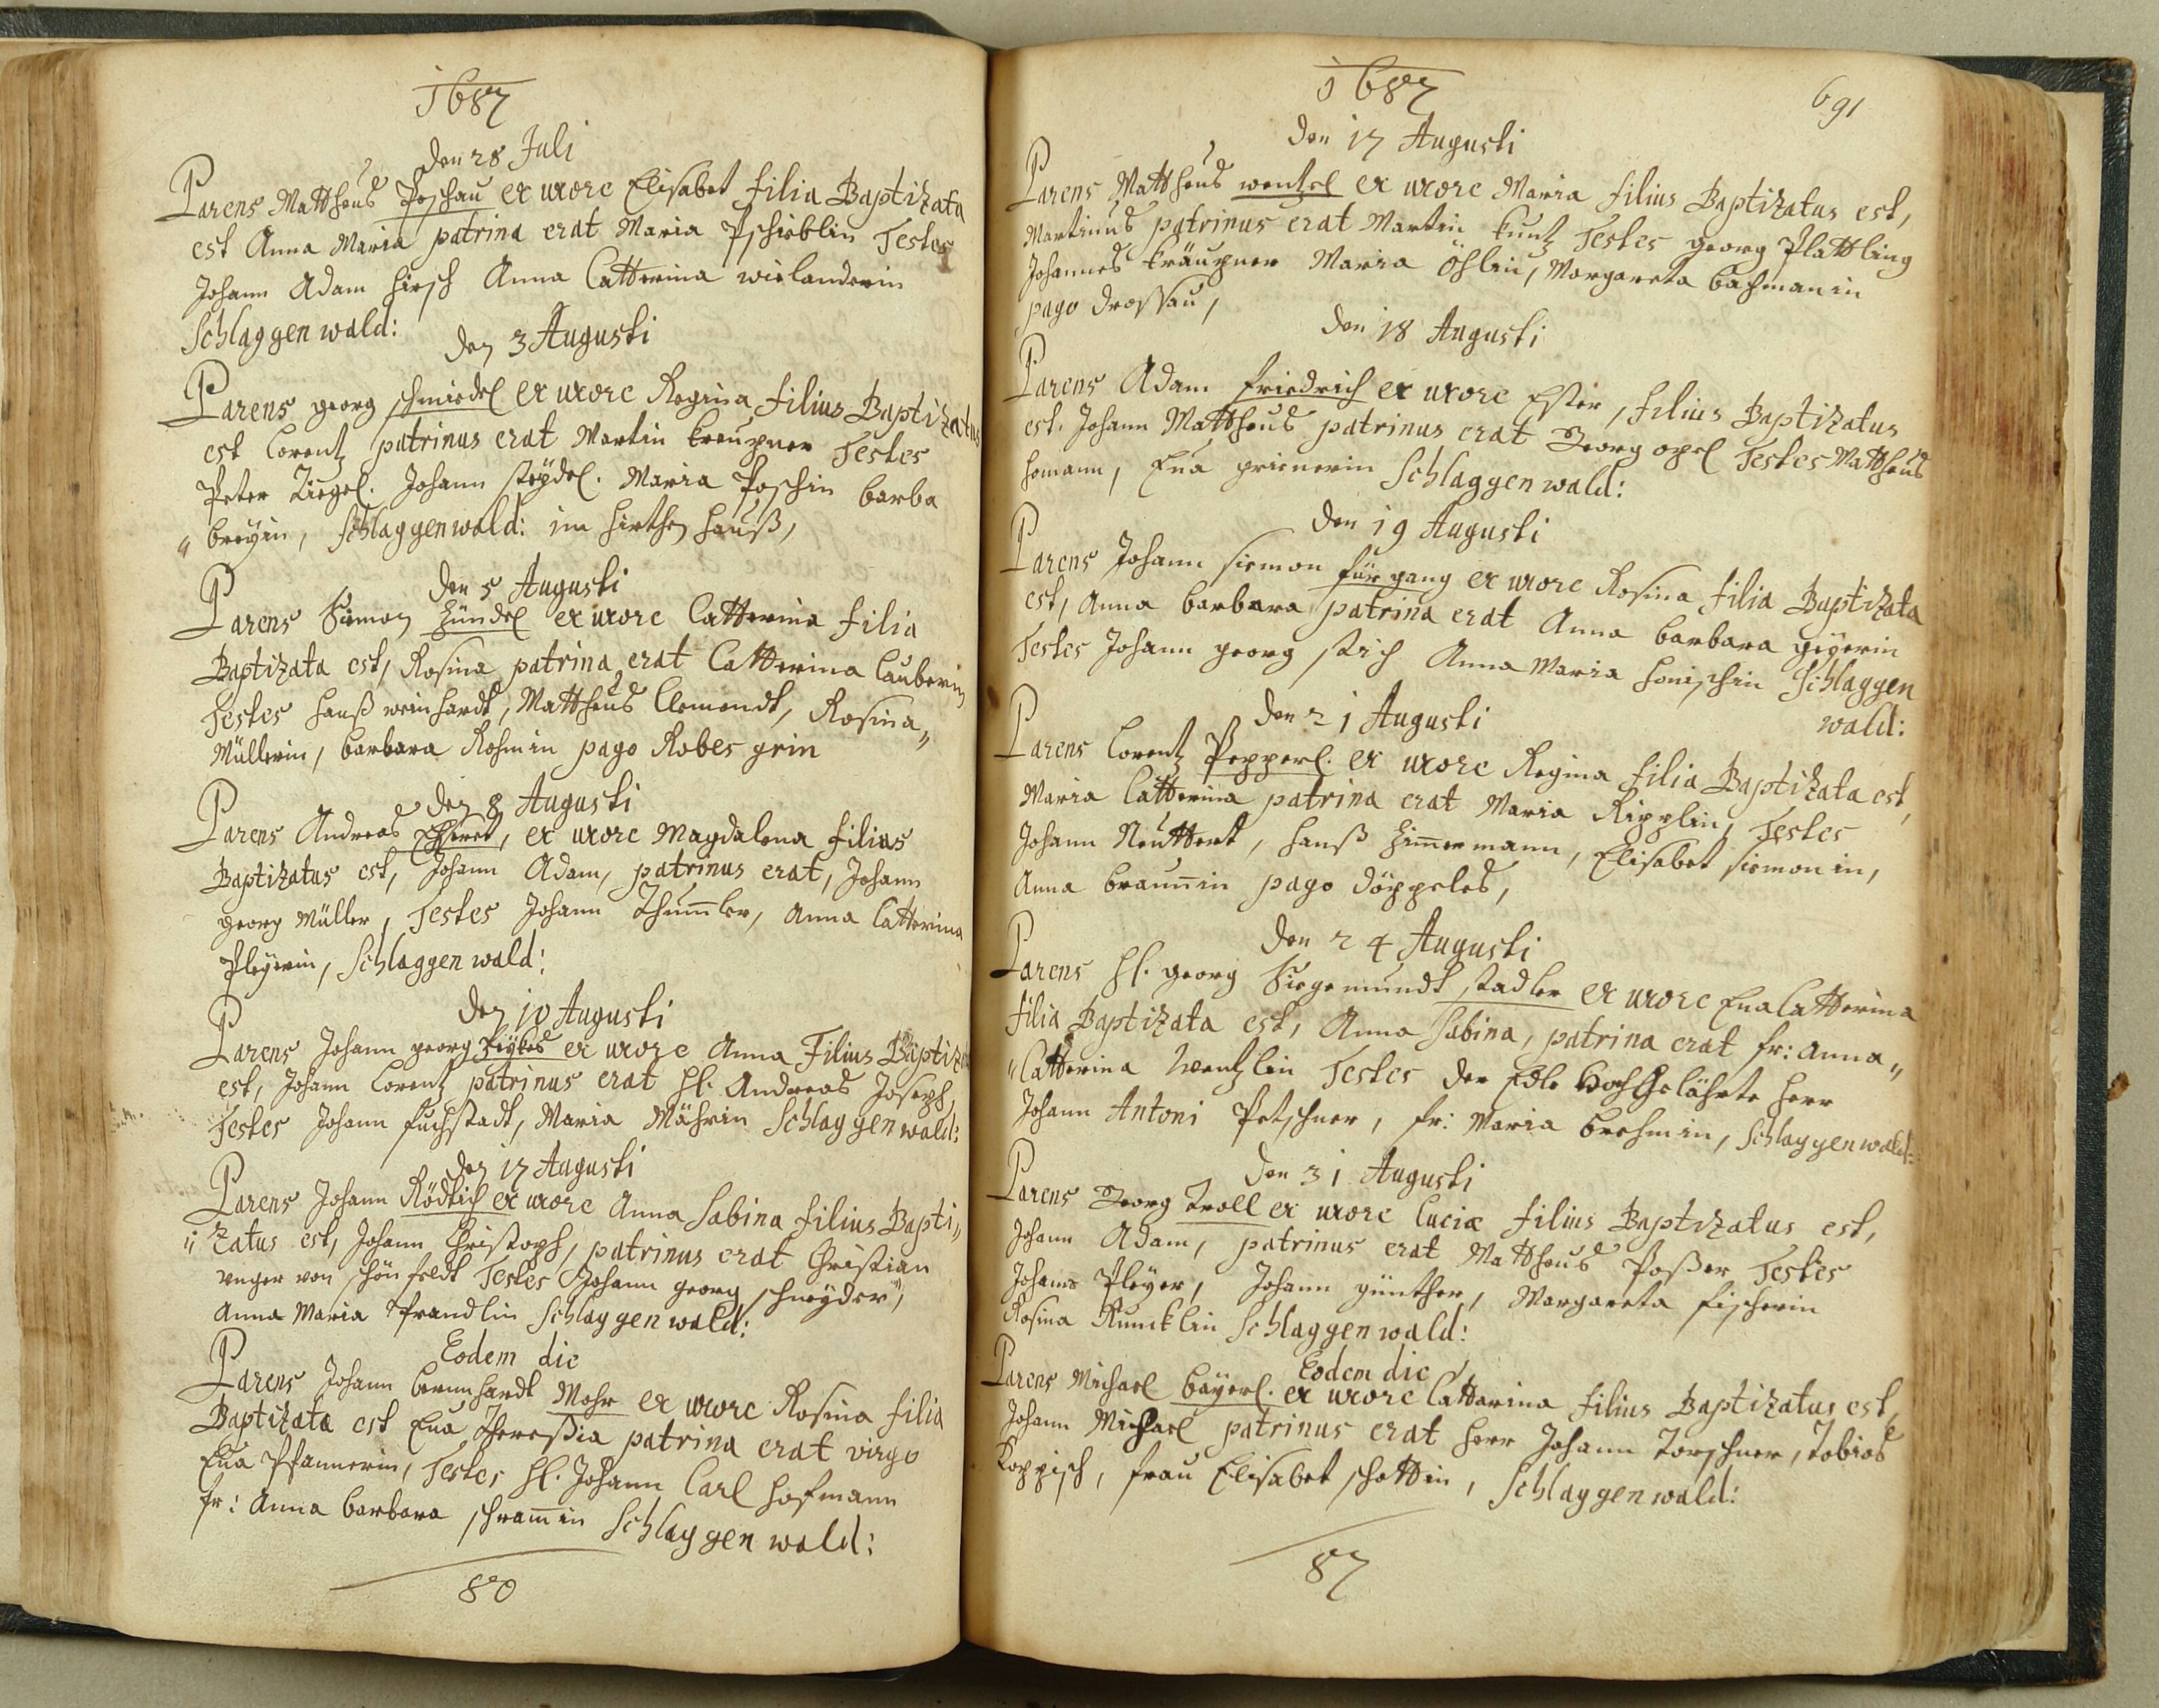 1687
den 28 Juli
Parens Mattheus Poschau ex uxore Elisabet filia Baptizata
est Anna Maria patrina erat Maria Pschieblin Testes
Johann Adam Hirsch Anna Catterina wielanderin
Schlaggenwald:
den 3 Augusti
Parens georg schmiedel ex uxore Regina filius Baptizatus
est Lorentz patrinus erat Martin Kreuzner Testes
Peter Ziegel. Johann steydel. Maria Poschin barba
„ breyin, Schlaggenwald: im hirthen hauß,
den 5 Augusti
Parens Simon Hündel ex uxore Catterina filia
Baptizata est, Rosina patrina erat Catterina Lauberin
Testes Hanß weinhardt, Mattheus Clementdt, Rosina„
Müllerin, barbara Rohmin pago Robes grin
den 8 Augusti
Parens Andreas ex uxore Magdalena filius
Baptizatus est, Johann Adam, patrinus erat, Johann
georg Müller, Testes Johann Thum̄ler, Anna Catterina
Pleyerin, Schlaggenwald:
den 10 Augusti
Parens Johann georg ex uxore Anna Filius Baptiz
est, Johann Lorentz patrinus erat Hl. Andreas Joseph,
Testes Johann fuchstadt, Maria Mährin Schlaggenwald:
den 17 Augusti
Parens Johann Rödtich ex uxore Anna Sabina filius Bapti„
„ zatus est, Johann Christoph, patrinus erat Christian
unger von schönfeldt Testes Johann georg schneyder,
Anna Maria Prandlin Schlaggenwald:
Eodem die
Parens Johann bernhardt Mohr ex uxore Rosina filia
Baptizata est Eua Theressia patrina erat virgo
Eua Pfannerin, Testes Hl. Johann Carl Hofmann
fr: Anna barbara schram̄in Schlaggenwald:
80
1687
691
den 17 Augusti
Parens Mattheus wentzel ex uxore Maria filius Baptizatus est,
Martinus patrinus erat Martin Kuntz Testes georg Plattling
Johannes Kräupner Maria Öhlin, Margareta bachmanin
pago drossau,
den 18 Augusti
Parens Adam friedrich ex uxore Ester, filius Baptizatus
est. Johann Mattheus patrinus erat Georg opel Testes Mattheus
Homann, Eua grienerin Schlaggenwald:
den 19 Augusti
Parens Johann siemon fürgang ex uxore Rosina filia Baptizata
est, Anna barbara patrina erat Anna barbara geyerin
Testes Johann georg stich Anna Maria Honischin Schlaggen
wald:
den 21 Augusti
Parens Lorentz Pepperl. ex uxore Regina filia Baptizata est,
Maria Catterina patrina erat Maria Ripplin, Testes
Johann Neuttert, Hanß Zim̄ermann, Elisabet siemonin,
Anna braun̄in pago döppeles,
den 24 Augusti
Parens Hl. georg Siegemundt stadler ex uxore Eua Catterina
filia Baptizata est, Anna Sabina, patrina erat fr: Anna„
„Catterina Wentzlin Testes der Edle Hoch Gelährte Herr
Johann Antoni Petschner, fr: Maria brehmin, Schlaggenwald:
den 31 Augusti
Parens Georg Troll ex uxore Luciæ filius Baptizatus est,
Johann Adam, patrinus erat Mattheus Poßer Testes
Johans Pleyer, Johann günther, Margareta fischerin
Rosina Runcklin Schlaggenwald:
Eodem die
Parens Michael bayerl. ex uxore Cattarina filius Baptizatus est,
Johann Michael patrinus erat Herr Johann Torschner, Tobias
Koppisch, frau Elisabet schottin, Schlaggenwald:
87